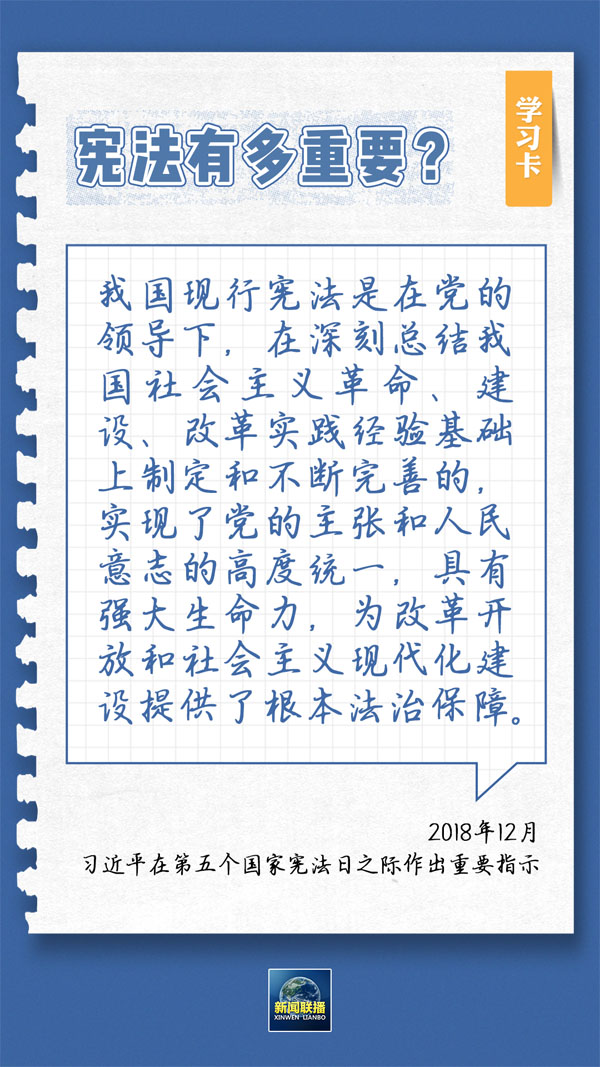 学习卡
宪法有多重要?
我国现行宪法是在党的
领导下，在深刻总结我
国社会主义革命、建
设、改革实践经验基础
上制定和不断完善的，
实现了党的主张和人民
意志的高度统一，具有
强大生命力，为改革开
放和社会主义现代化建
设提供了根本法治保障。
2018年12月
习近平在第五个国家宪法日之际作出重要指示
新闻联播
XINWEN LIANBO